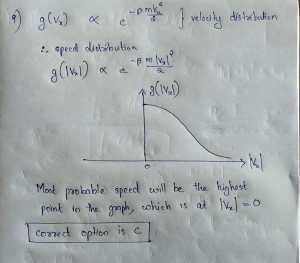 9) g(Vₓ) ∝ e^(-β mVₓ²/2) } velocity distribution
∴ speed distribution
g(|Vₓ|) ∝ e^(-β m|Vₓ|²/2)
g(|Vₓ|)
|Vₓ|
0
Most probable speed will be the highest
point in the graph, which is at |Vₓ| = 0
correct option is C